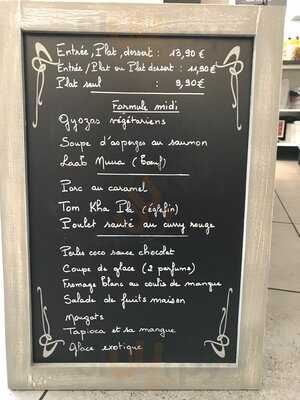 Entrée, Plat, dessert : 13,90 €
Entrée / Plat ou Plat dessert : 11,90 €
Plat seul : 9,90 €
Formule midi
Gyozas végétariens
Soupe d'asperges au saumon
Laab Muua (bœuf)
Porc au caramel
Tom Kha Pla (églefin)
Poulet sauté au curry rouge
Perles coco sauce chocolat
Coupe de glace (2 parfums)
Fromage blanc au coulis de mangue
Salade de fruits maison
Nougats
Tapioca et sa mangue
Glace exotique